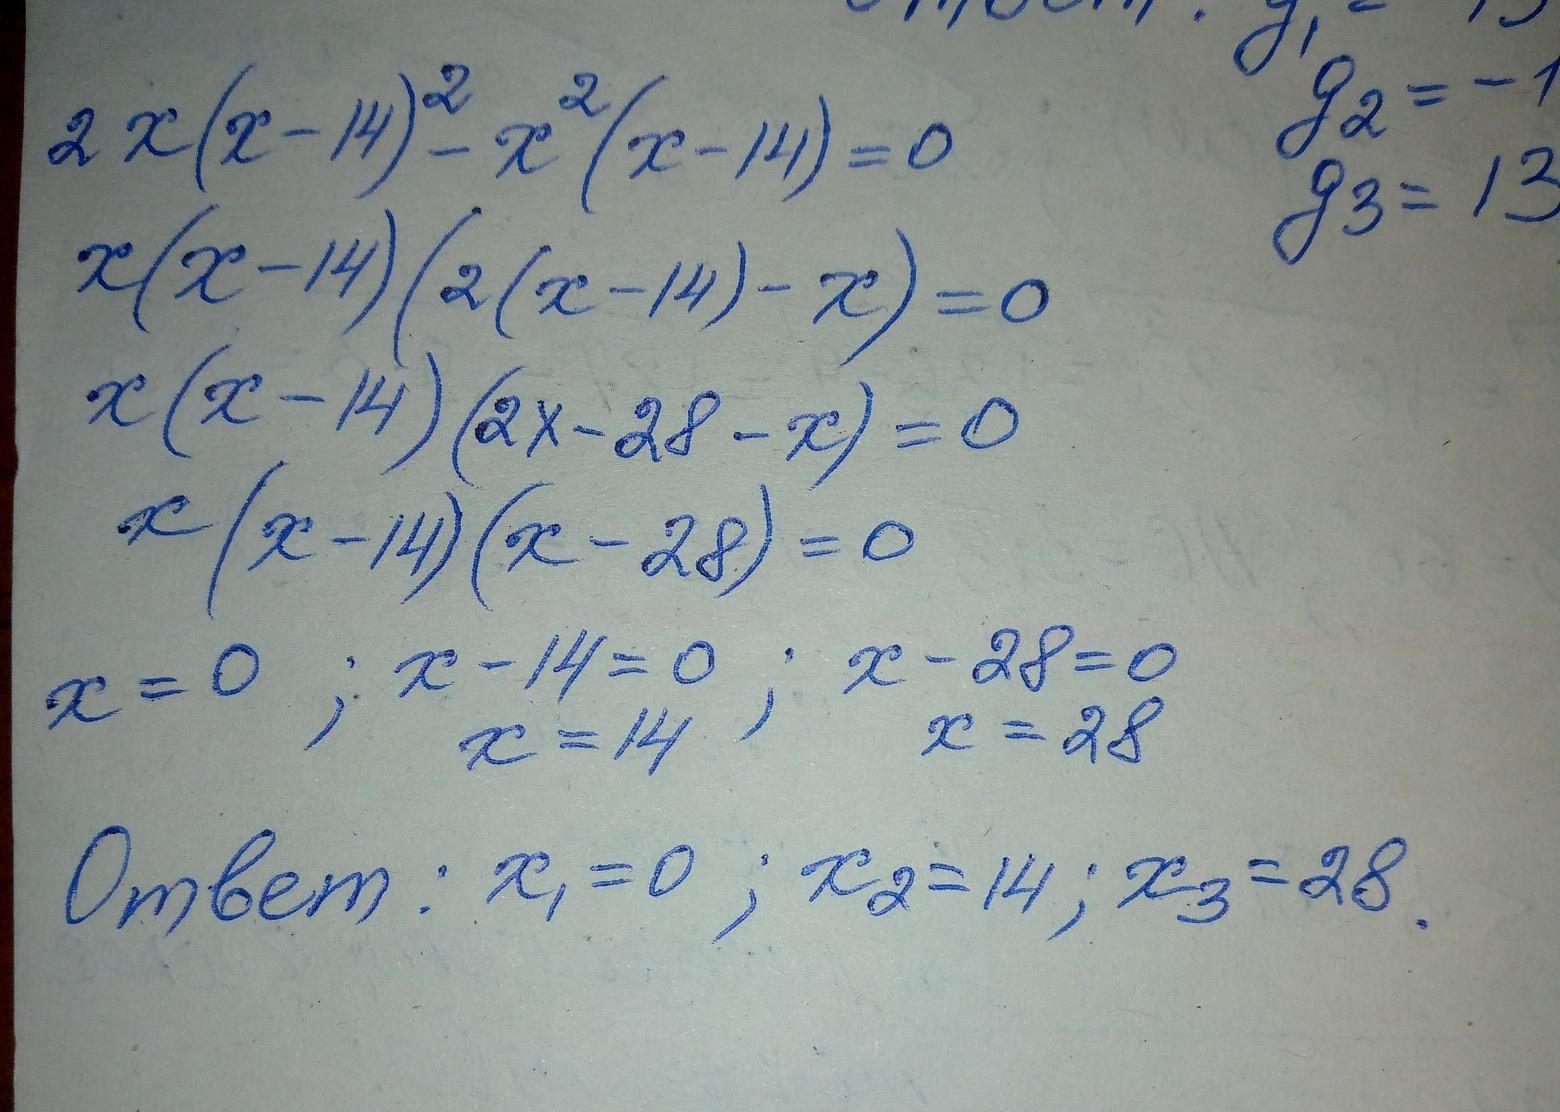 y₂ = -1
y₃ = 13
2x(x-14)² - x²(x-14) = 0
x(x-14)(2(x-14)-x) = 0
x(x-14)(2x-28-x) = 0
x(x-14)(x-28) = 0
x = 0 ; x-14=0 ; x-28=0
x = 14 x = 28
Ответ: x₁ = 0 ; x₂ = 14 ; x₃ = 28.